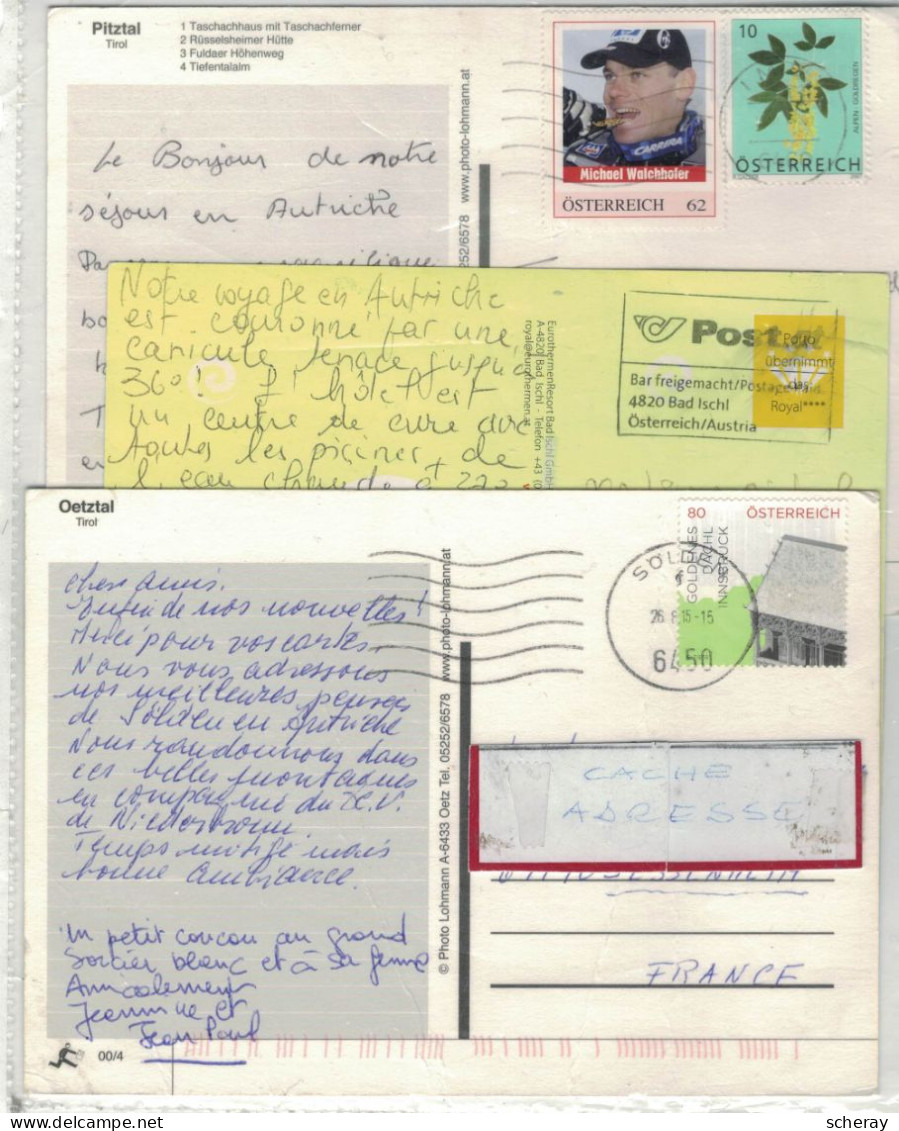 Pitztal
Tirol
1 Taschachhaus mit Taschachferner
2 Rüsselsheimer Hütte
3 Fuldaer Höhenweg
4 Tiefentalalm
www.photo-lohmann.at
05252/6578
Michael Walchhofer
CARRERA
ÖSTERREICH 62
10
ALPEN - GOLDREGEN
ÖSTERREICH
Le Bonjour de notre
séjour en Autriche
Notre voyage en Autriche
est couronné par une
canicule tenace jusqu'à
36° ! L' hôtel est
un centre de cure avec
toutes les piscines de
l'eau chaude
EurothermenResort Bad Ischl GmbH
A-4820 Bad Ischl - Telefon +43 (0
royal@eurothermen.at
Post.at
Bar freigemacht/Postage paid
4820 Bad Ischl
Österreich/Austria
Porto
übernimmt
das
Royal****
Oetztal
Tirol
80 ÖSTERREICH
GOLDENES
DACHL
INNSBRUCK
SÖLDEN
26.8.15-15
6450
Chers amis.
Enfin de nos nouvelles !
Merci pour vos cartes.
Nous vous adressons
nos meilleures pensées
de Sölden en Autriche
Nous randonnons dans
ces belles montagnes
en compagnie du C.V.
de Niederbronn.
Temps mitigé mais
bonne ambiance.
Un petit coucou au grand
Sorcier blanc et à sa femme
Amicalement
Jeannine et
Jean Paul
© Photo Lohmann A-6433 Oetz Tel. 05252/6578 www.photo-lohmann.at
CACHE
ADRESSE
FRANCE
00/4
scheray